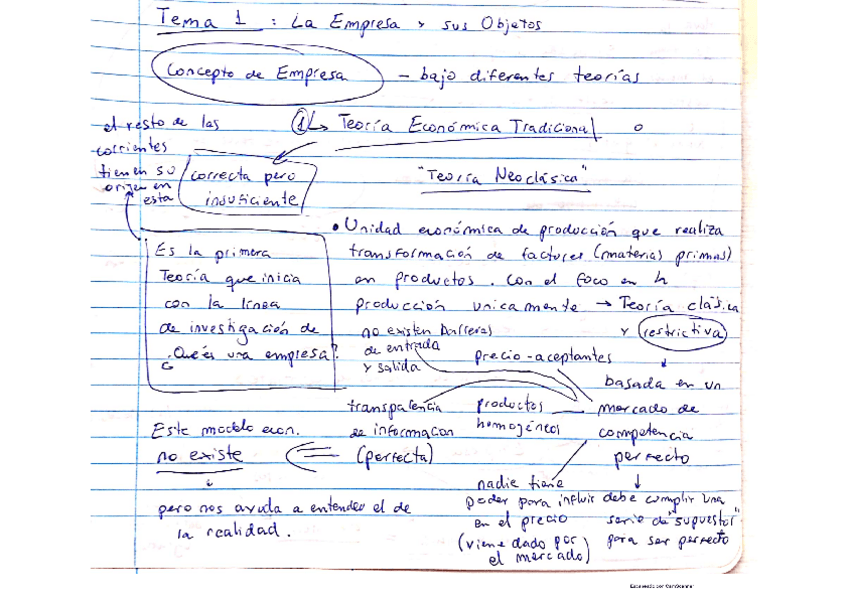 Tema 1 : La Empresa y sus Objetos
Concepto de Empresa - bajo diferentes teorías
el resto de las
corrientes
tienen su
origen en
esta
① Teoría Económica Tradicional
correcta pero
insuficiente
"Teoría Neoclásica"
• Unidad económica de producción que realiza
transformación de factores (materias primas)
en productos. Con el foco en la
producción unicamente → Teoría clásica
y restrictiva
Es la primera
Teoría que inicia
con la línea
de investigación de
¿Qué es una empresa?
no existen barreras
de entrada
y salida
precio-aceptantes
basada en un
mercado de
competencia
perfecto
transparencia
de informacion
(perfecta)
productos
homogéneos
Este modelo econ.
no existe
pero nos ayuda a entender el de
la realidad.
nadie tiene
poder para influir
en el precio
(viene dado por
el mercado)
debe cumplir una
serie de "supuestos"
para ser perfecto
Escaneado por CamScanner